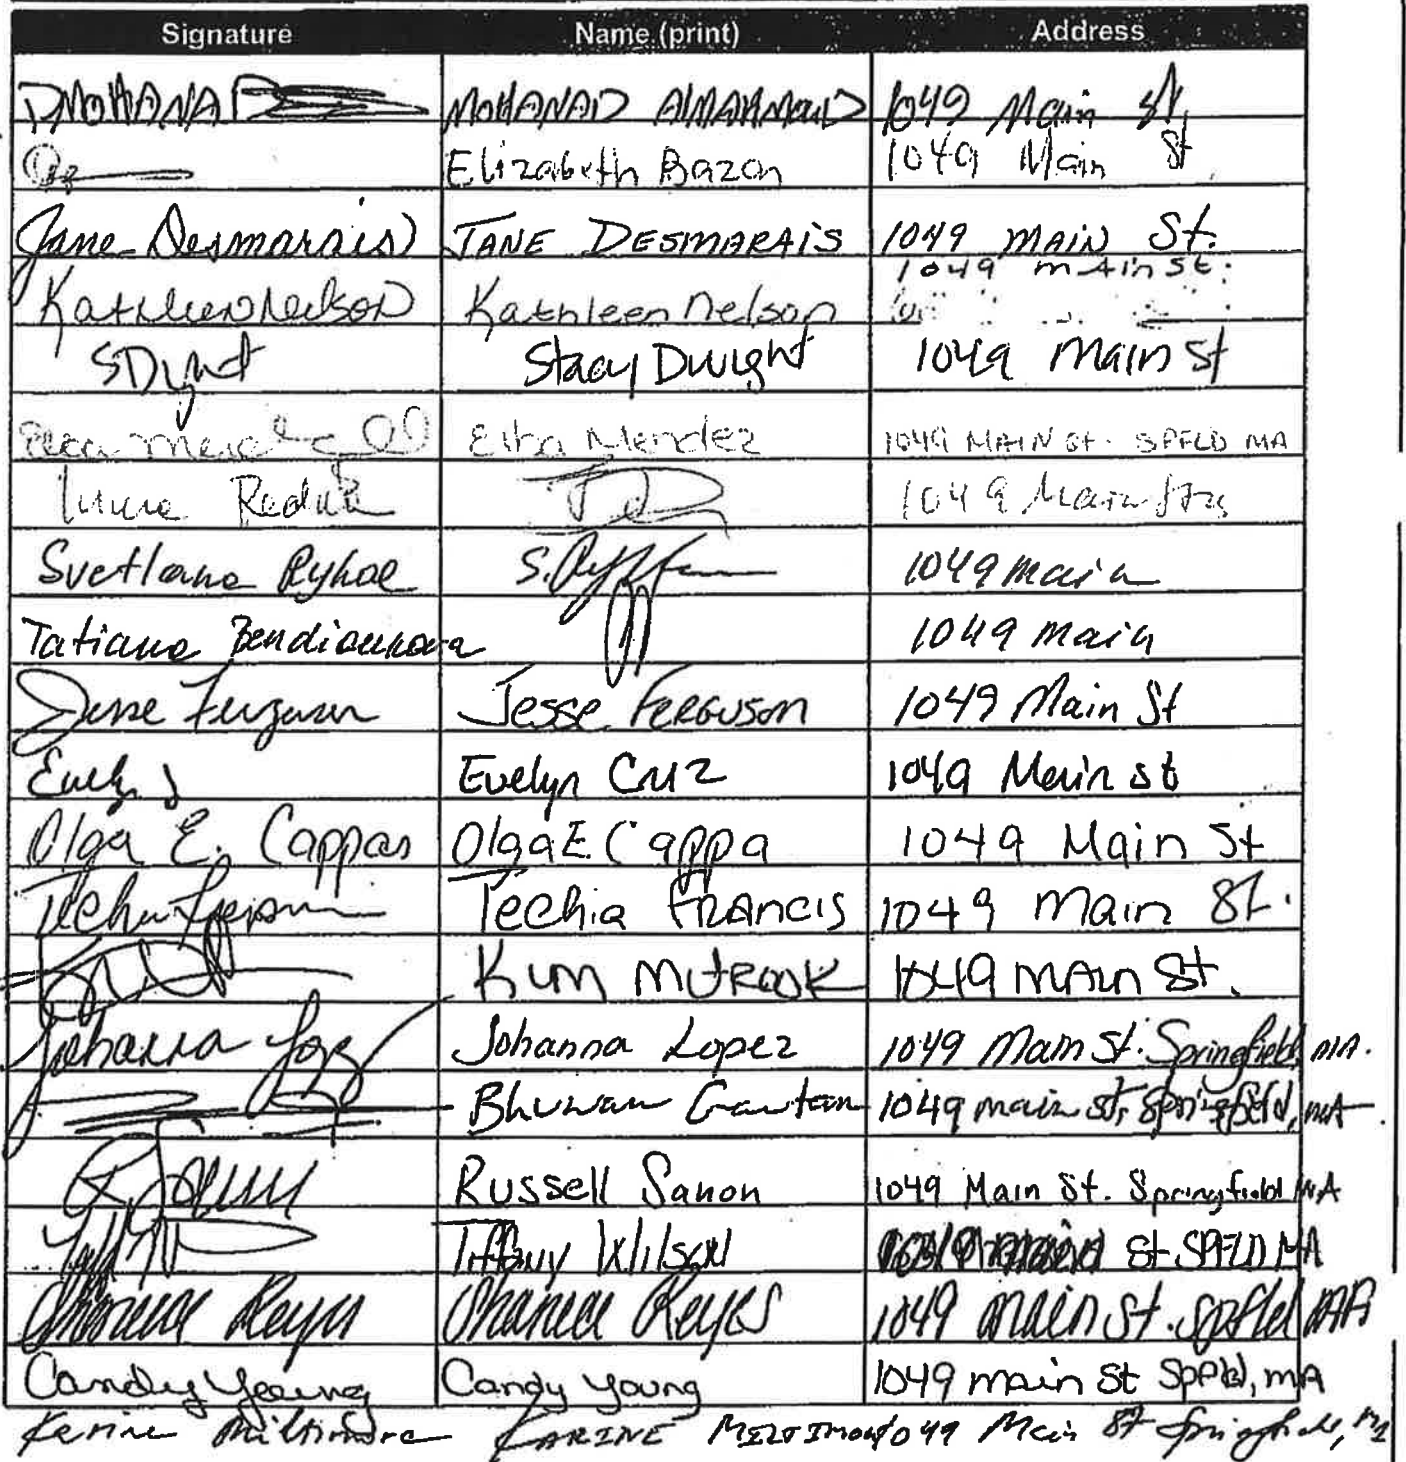 Signature Name (print) Address
MOHANAD ALMAHMOUD 1049 Main St,
Elizabeth Bazan 1049 Main St
Jane Desmarais JANE DESMARAIS 1049 MAIN St.
1049 main St.
Kathleen Nelson Kathleen Nelson
SDwght Stacy Dwight 1049 Main St
Elba Mendez 1049 MAIN St. SPFLD MA
1049 Main St
Svetlana 1049 Main
Tatiana 1049 Main
Jesse Ferguson Jesse Ferguson 1049 Main St
Evelyn Cruz 1049 Main St
Olga E. Cappas Olga E Cappa 1049 Main St
Techia Francis 1049 Main St.
Kim 1049 Main St.
Johanna Lopez Johanna Lopez 1049 Main St. Springfield, MA.
Bhuwan Gautam 1049 main St, Springfield, MA
Russell Sanon 1049 Main St. Springfield MA
Tiffany Wilson St. SPFLD MA
Reyes Reyes 1049 Main St. Spfld MA
Candy Young Candy Young 1049 main St Spfld, MA
Karine Miltimore KARINE MILTIMORE 1049 Main St Springfield, Ma